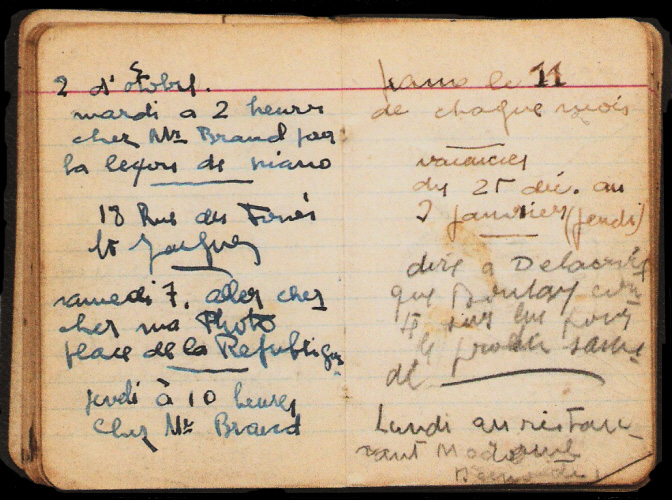 2 d'octobre.
mardi a 2 heures
chez Mr Braud pour
la leçon de piano
18 Rue des Fossés
St Jacques
samedi 7, aller cher
cher ma Photo
place de la Republique
jeudi à 10 heures
Chez Mr Braud
le 11
de chaque mois
vacances
du 25 déc. au
7 janvier (jeudi)
dire a
que
Lundi au restau-
rant Madame